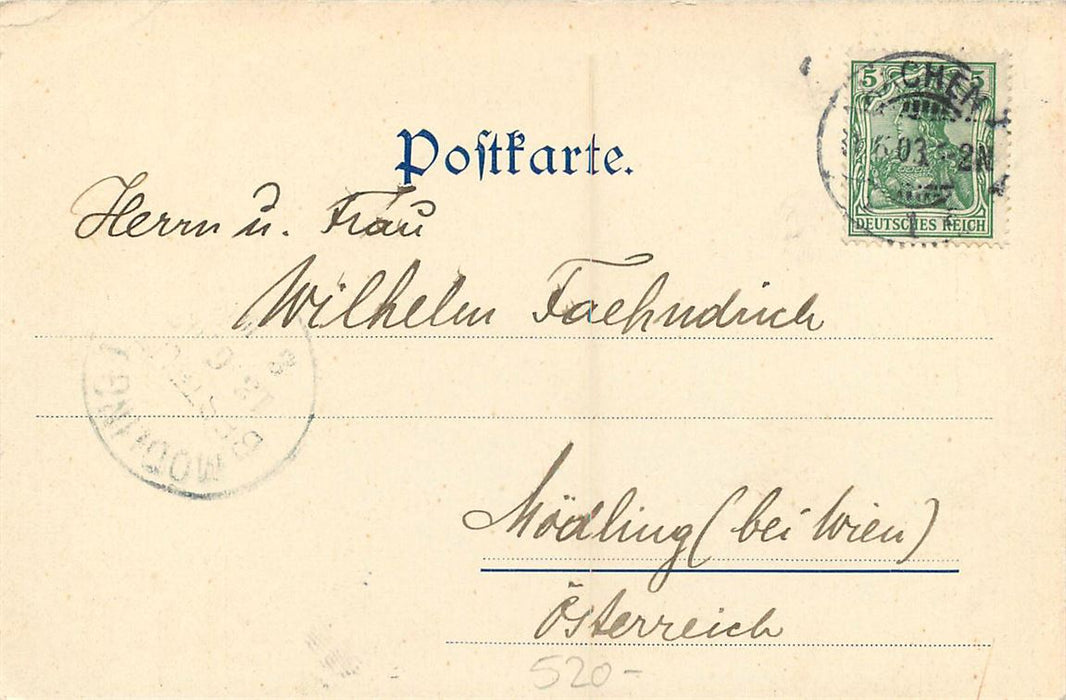 Postkarte.
5 5
AACHEN 1
6.03. 2-
DEUTSCHES REICH
Herrn u. Frau
Wilhelm Faehndrich
MÖDLING
Mödling (bei Wien)
Österreich
520-